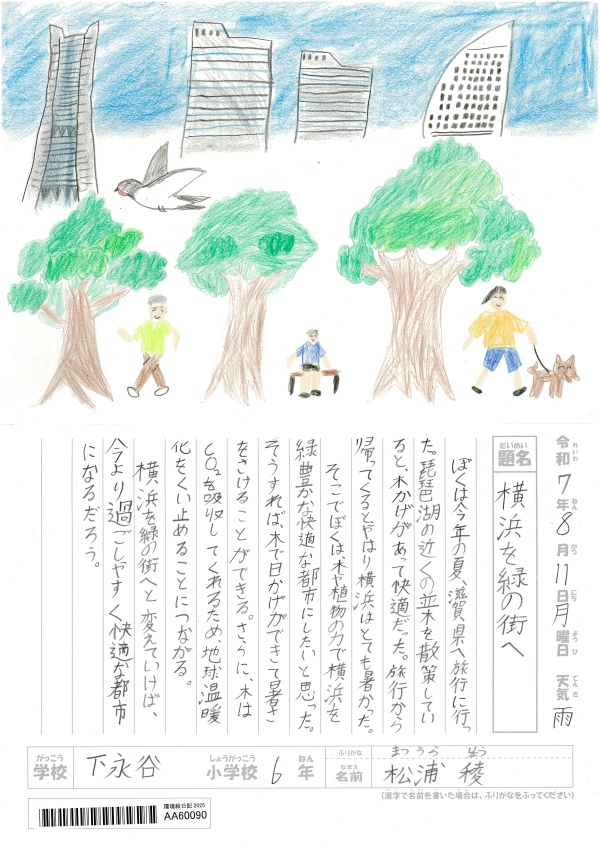 令和7年8月11日月曜日 天気 雨
れいわ ねん がつ にち ようび てんき
だいめい
題名
横浜を緑の街へ
ぼくは今年の夏、滋賀県へ旅行に行っ
た。琵琶湖の近くの並木を散策してい
ると、木かげがあって快適だった。旅行から
帰ってくるとやはり横浜はとても暑かった。
そこでぼくは、木や植物の力で横浜を
緑豊かな快適な都市にしたいと思った。
そうすれば、木で日かげができて暑さ
をさけることができる。さらに、木は
CO₂を吸収してくれるため、地球温暖
化をくい止めることにつながる。
横浜を緑の街へと変えていけば、
今より過ごしやすく快適な都市
になるだろう。
がっこう しょうがっこう ねん
学校 下永谷 小学校 6 年
ふりがな まつうら りょう
なまえ
名前 松浦 稜
(漢字で名前を書いた場合は、ふりがなをふってください)
環境絵日記 2025
AA60090